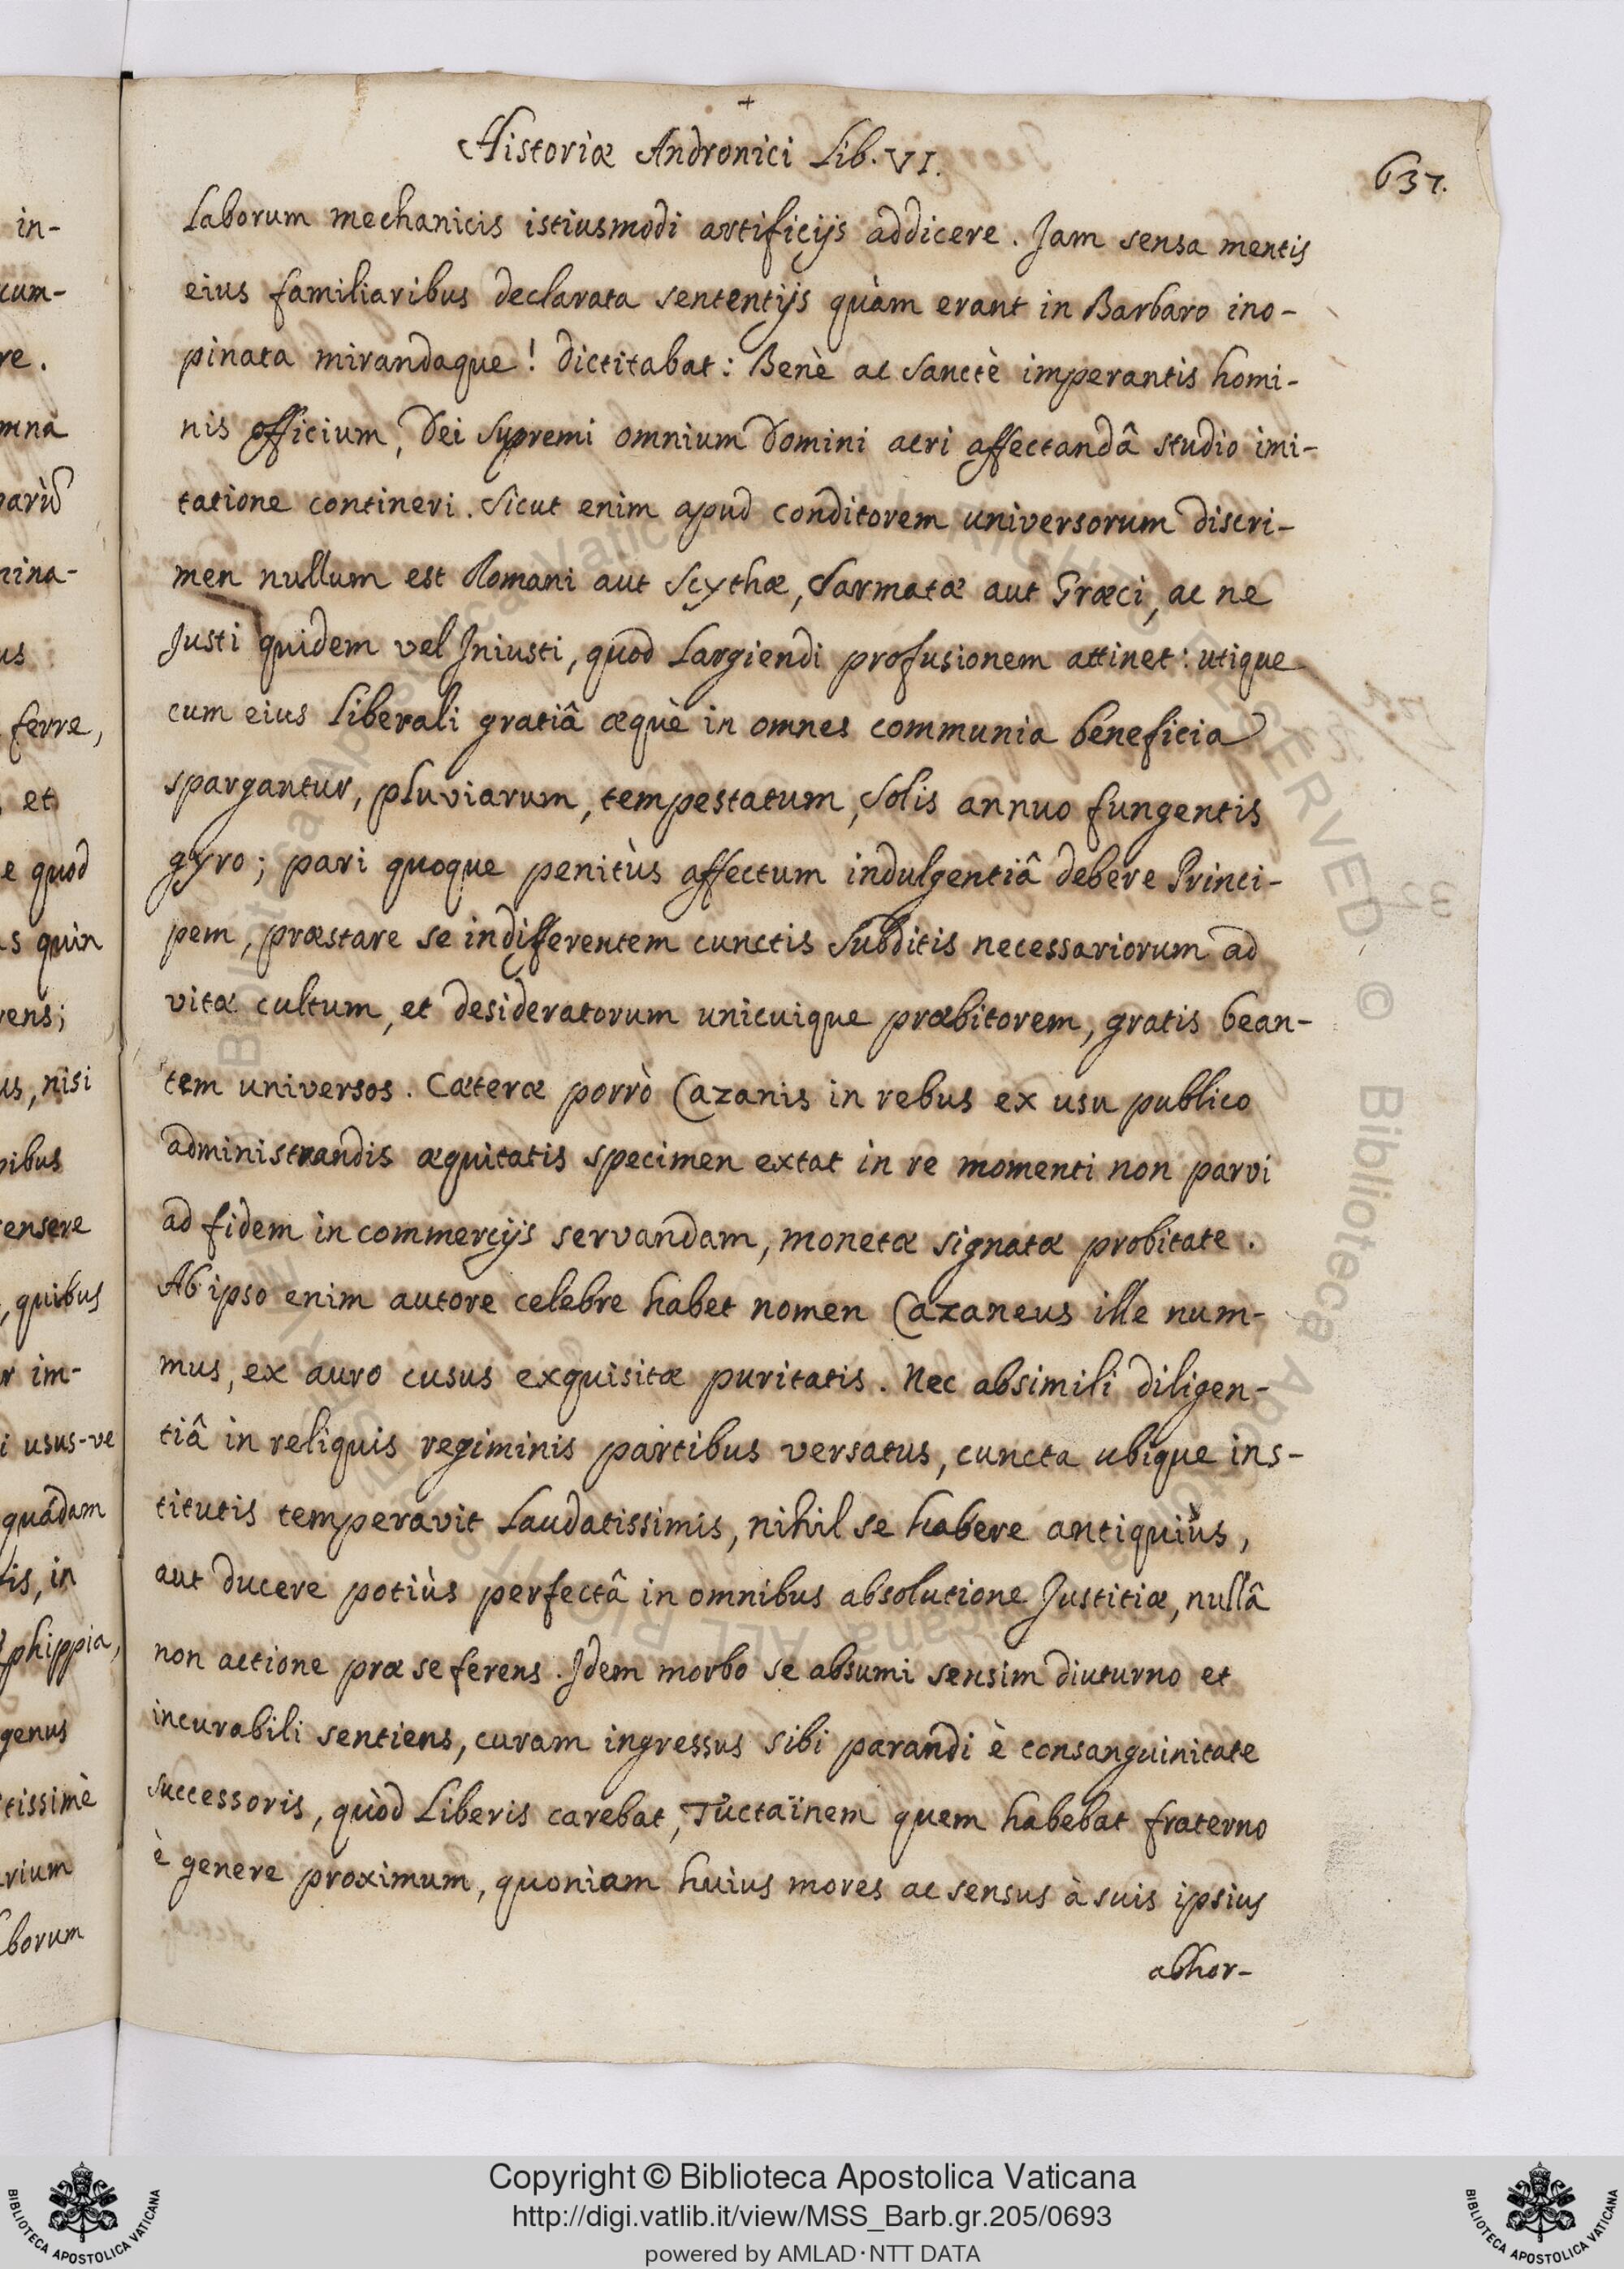 +
Historiæ Andronici Lib. VI.
637.
Laborum mechanicis istiusmodi artificijs addicere. Jam sensa mentis
eius familiaribus declarata sententijs quàm erant in Barbaro ino-
pinata mirandaque! dictitabat: Benè ac sanctè imperantis homi-
nis officium, Dei supremi omnium Domini acri affectandâ studio imi-
tatione contineri. Sicut enim apud conditorem universorum discri-
men nullum est Romani aut Scythæ, Sarmatæ aut Græci, ac ne
Justi quidem vel Jniusti, quod Largiendi profusionem attinet: utique
cum eius Liberali gratiâ æquè in omnes communia beneficia
spargantur, pluviarum, tempestatum, Solis annuo fungentis
gyro; pari quoque penitùs affectum indulgentiâ debere Princi-
pem, præstare se indifferentem cunctis Subditis necessariorum ad
vitæ cultum, et desideratorum unicuique præbitorem, gratis bean-
tem universos. Cæteræ porrò Cazanis in rebus ex usu publico
administrandis æquitatis specimen extat in re momenti non parvi
ad fidem in commercijs servandam, monetæ signatæ probitate.
Ab ipso enim autore celebre habet nomen Cazaneus ille num-
mus, ex auro cusus exquisitæ puritatis. Nec absimili diligen-
tiâ in reliquis regiminis partibus versatus, cuncta ubique ins-
titutis temperavit Laudatissimis, nihil se habere antiquiùs,
aut ducere potiùs perfectâ in omnibus absolutione Justitiæ, nullâ
non actione præ se ferens. Jdem morbo se absumi sensim diuturno et
incurabili sentiens, curam ingressus sibi parandi è consanguinitate
successoris, quòd Liberis carebat, Tuctaïnem quem habebat fraterno
è genere proximum, quoniam huius mores ac sensus à suis ipsius
abhor-
in-
cum-
re.
mna
nina-
us
ferre,
et
e quod
s quin
rens;
us, nisi
nibus
censere
, quibus
r im-
i usus-ve
quâdam
tis, in
phippia,
genus
tissimè
rium
borum
Copyright © Biblioteca Apostolica Vaticana
http://digi.vatlib.it/view/MSS_Barb.gr.205/0693
powered by AMLAD·NTT DATA
BIBLIOTECA APOSTOLICA VATICANA
BIBLIOTECA APOSTOLICA VATICANA